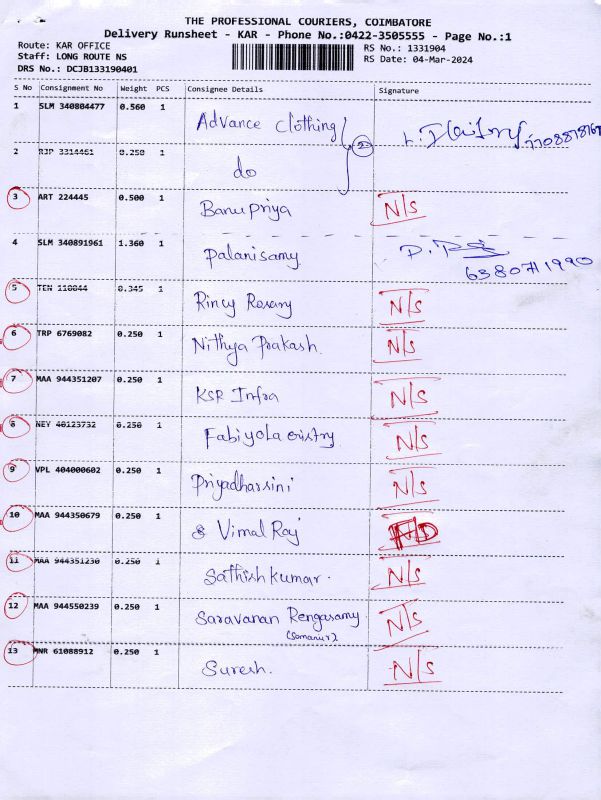 THE PROFESSIONAL COURIERS, COIMBATORE
Delivery Runsheet - KAR - Phone No.:0422-3505555 - Page No.:1
Route: KAR OFFICE
Staff: LONG ROUTE NS
DRS No.: DCJB133190401
RS No.: 1331904
RS Date: 04-Mar-2024
S No Consignment No Weight PCS Consignee Details Signature
1 SLM 340804477 0.560 1 Advance clothing
2 RJP 3314461 0.250 1 do
3 ART 224445 0.500 1 Banupriya N/S
4 SLM 340891961 1.360 1 Palanisamy
6380711990
5 TEN 110844 0.345 1 Rincy Rosary N/S
6 TRP 6769082 0.250 1 Nithya Prakash. N/S
7 MAA 944351207 0.250 1 KSR Infra N/S
8 NEY 40123732 0.250 1 Fabiyola N/S
9 VPL 404000602 0.250 1 Priyadharsini N/S
10 MAA 944350679 0.250 1 Vimal Raj
11 MAA 944351230 0.250 1 Sathish kumar. N/S
12 MAA 944550239 0.250 1 Saravanan Rengasamy N/S
(Somanur)
13 MNR 61088912 0.250 1 Suresh. N/S